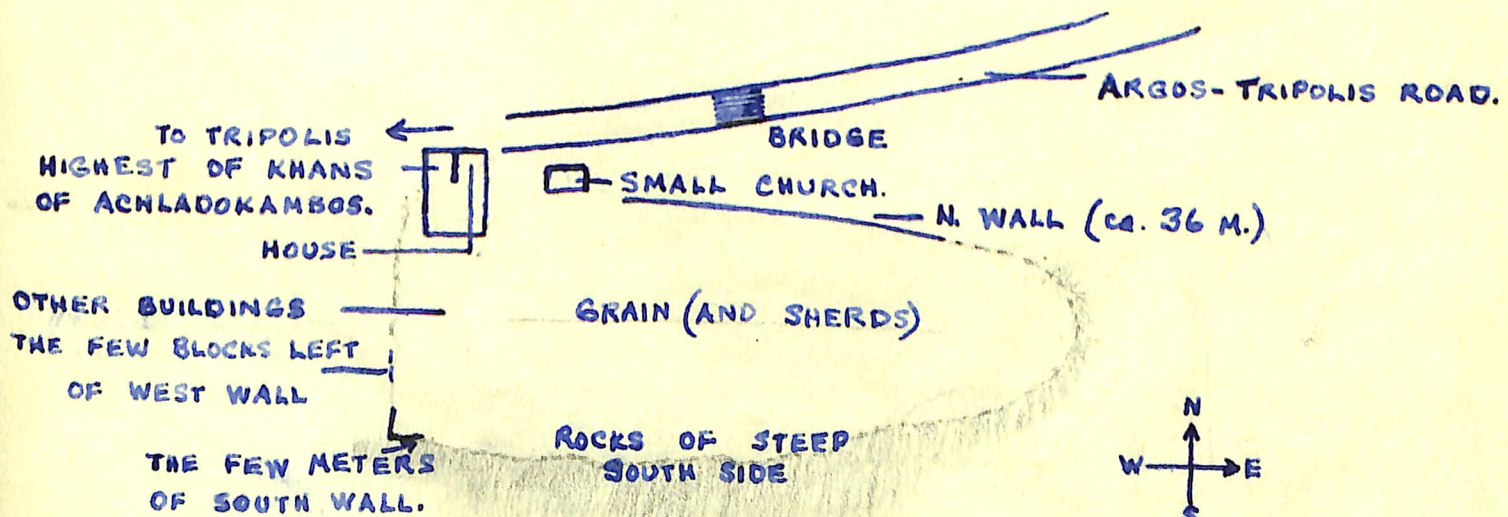 ARGOS-TRIPOLIS ROAD.
TO TRIPOLIS
BRIDGE
HIGHEST OF KHANS
OF ACHLADOKAMBOS.
SMALL CHURCH.
N. WALL (ca. 36 M.)
HOUSE
OTHER BUILDINGS
GRAIN (AND SHERDS)
THE FEW BLOCKS LEFT
OF WEST WALL
ROCKS OF STEEP
SOUTH SIDE
THE FEW METERS
OF SOUTH WALL.
N
W
E
S